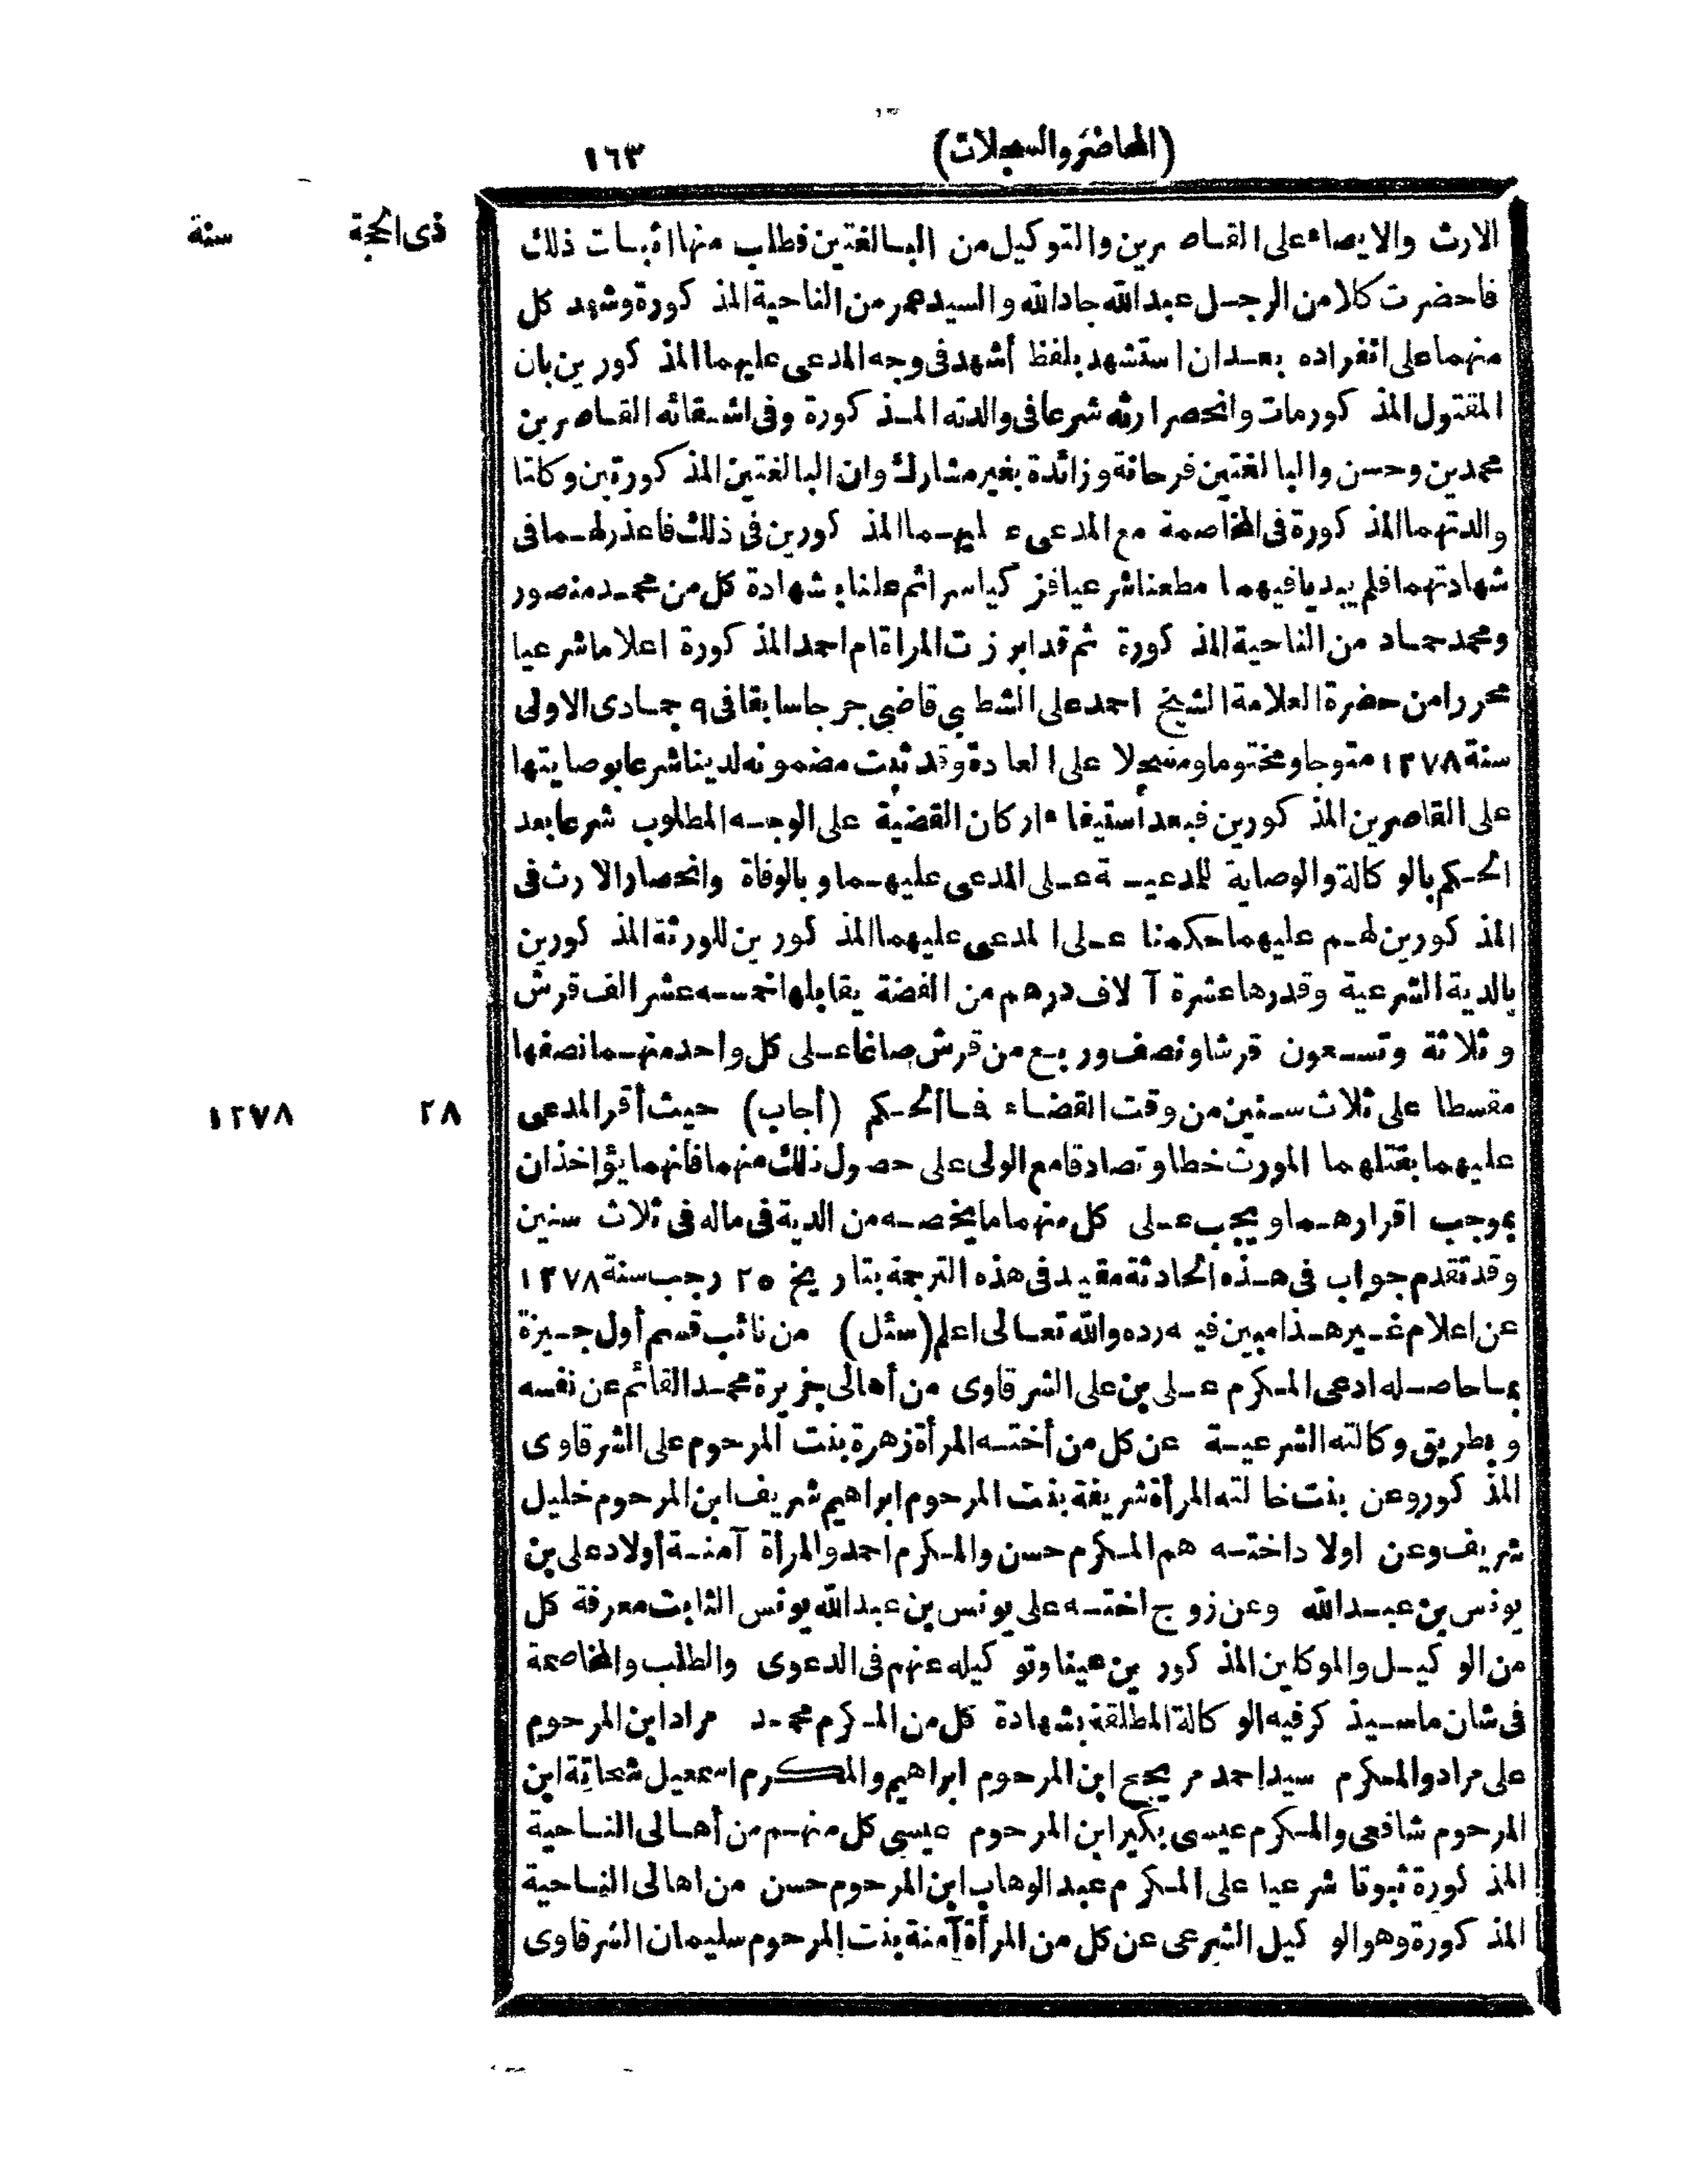 (المحاضر والسجلات) ١٦٣
ذى الحجة سنة
الارث والايصاء على القاصرين والتوكيل من البالغتين فطلب منها اثبات ذلك
فاحضرت كلا من الرجل عبد الله جاد الله والسيد عمر من الناحية المذكورة وشهد كل
منهما على انفراده بعد ان استشهد بلفظ أشهد فى وجه المدعى عليهما المذكورين بان
المقتول المذكور مات وانحصر ارثه شرعا فى والدته المذكورة وفى اشقائه القاصرين
محمدين وحسن والبالغتين فرحانة وزائدة بغير مشارك وان البالغتين المذكورتين وكلتا
والدتهما المذكورة فى المخاصمة مع المدعى عليهما المذكورين فى ذلك فاعذر لهما فى
شهادتهما فلم يبديا فيهما مطعنا شرعيا فزكيا سرا ثم علنا بشهادة كل من محمد منصور
ومحمد حماد من الناحية المذكورة ثم قد ابرزت المراة ام احمد المذكورة اعلاما شرعيا
محررا من حضرة العلامة الشيخ احمد على الشطبي قاضي جرجا سابقا فى ٩ جمادى الاولى
سنة ١٢٧٨ متوجا ومختوما ومسجلا على العادة وقد ثبت مضمونه لدينا شرعا بوصايتها
على القاصرين المذكورين فبعد استيفاء اركان القضية على الوجه المطلوب شرعا بعد
الحكم بالوكالة والوصاية للمدعية على المدعى عليهما وبالوفاة وانحصار الارث فى
المذكورين لهم عليهما حكمنا على المدعى عليهما المذكورين للورثة المذكورين
بالدية الشرعية وقدرها عشرة آلاف درهم من الفضة يقابلها خمسه عشر الف قرش
وثلاثة وتسعون قرشا ونصف وربع من قرش صاغا على كل واحد منهما نصفها
مقسطا على ثلاث سنين من وقت القضاء فما الحكم (أجاب) حيث أقر المدعى ٢٨ ١٢٧٨
عليهما بقتلهما المورث خطا وتصادقا مع الولى على حصول ذلك منهما فانهما يؤاخذان
بموجب اقرارهما ويجب على كل منهما ما يخصه من الدية فى ماله فى ثلاث سنين
وقد تقدم جواب فى هذه الحادثة مقيد فى هذه الترجمة بتاريخ ٢٥ رجب سنة ١٢٧٨
عن اعلام غير هذا مبين فيه رده والله تعالى اعلم (سئل) من نائب قسم أول جيزة
بما حاصله ادعى المكرم على بن على الشرقاوى من أهالى جزيرة محمد القائم عن نفسه
وبطريق وكالته الشرعية عن كل من أخته المرأة زهرة بنت المرحوم على الشرقاوى
المذكور وعن بنت خالته المرأة شريفة بنت المرحوم ابراهيم شريف ابن المرحوم خليل
شريف وعن اولاد اخته هم المكرم حسن والمكرم احمد والمرأة آمنة أولاد على بن
يونس بن عبد الله وعن زوج اخته على يونس بن عبد الله يونس الثابت معرفة كل
من الوكيل والموكلين المذكورين عينا وتوكيله عنهم فى الدعوى والطلب والمخاصمة
فى شان ما سيذكر فيه الوكالة المطلقة بشهادة كل من المكرم محمد مراد ابن المرحوم
على مراد والمكرم سيد احمد مريجع ابن المرحوم ابراهيم والمكرم اسمعيل شحاتة ابن
المرحوم شافعى والمكرم عيسى بكير ابن المرحوم عيسى كل منهم من أهالى الناحية
المذكورة ثبوتا شرعيا على المكرم عبد الوهاب ابن المرحوم حسن من اهالى الناحية
المذكورة وهو الوكيل الشرعى عن كل من المرأة آمنة بنت المرحوم سليمان الشرقاوى